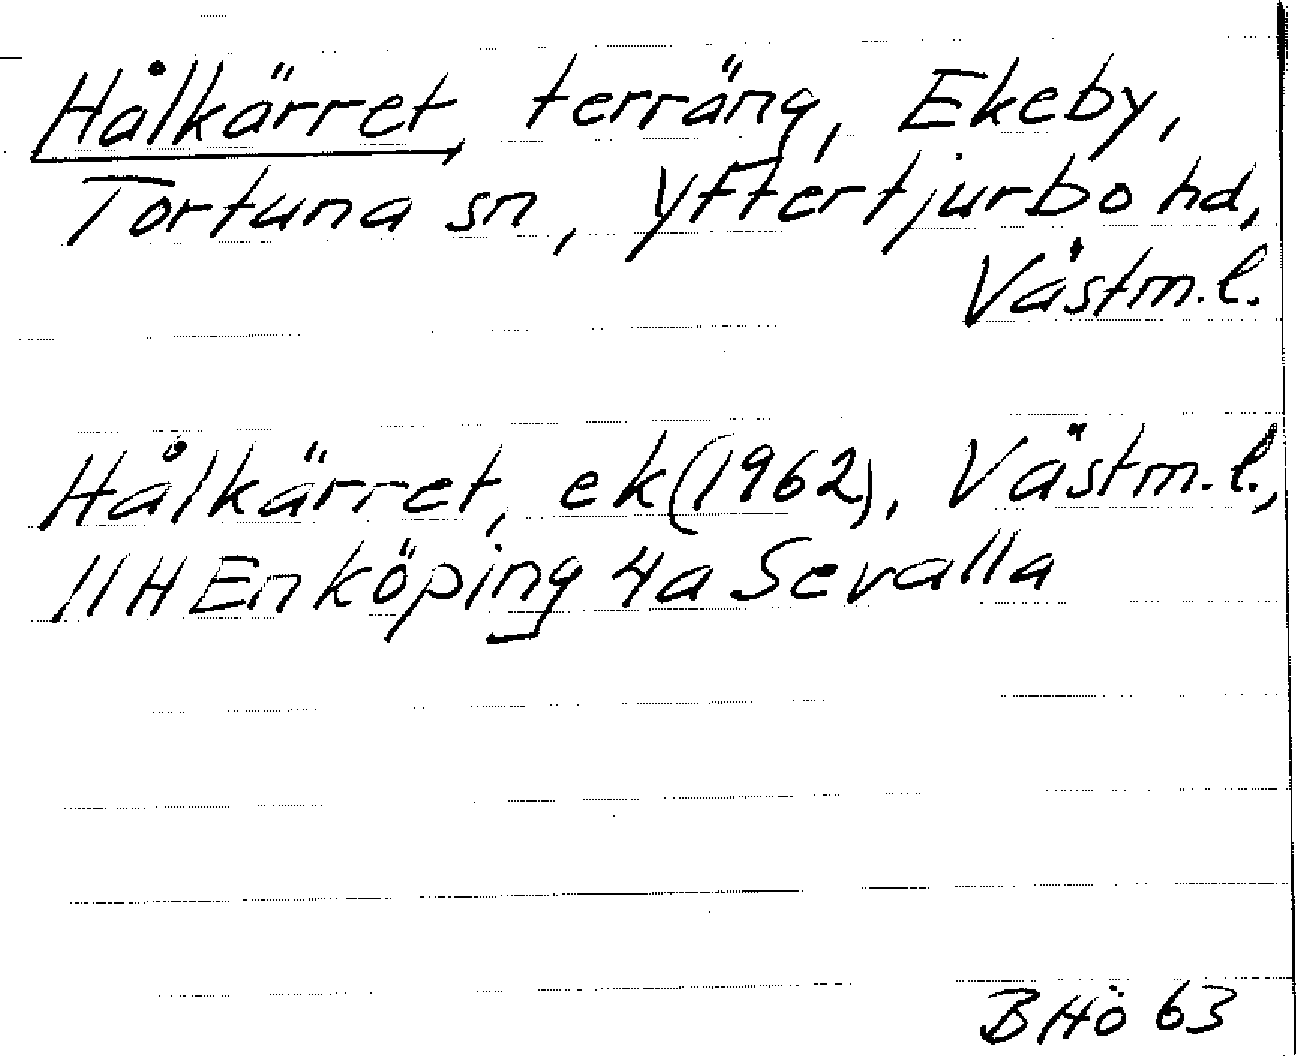 Hålkärret, terräng, Ekeby,
Tortuna sn, Yftertjurbo hd,
Västm.l.
Hålkärret, ek (1962), Västm.l.,
11H Enköping 4a Sevalla
BHö 63